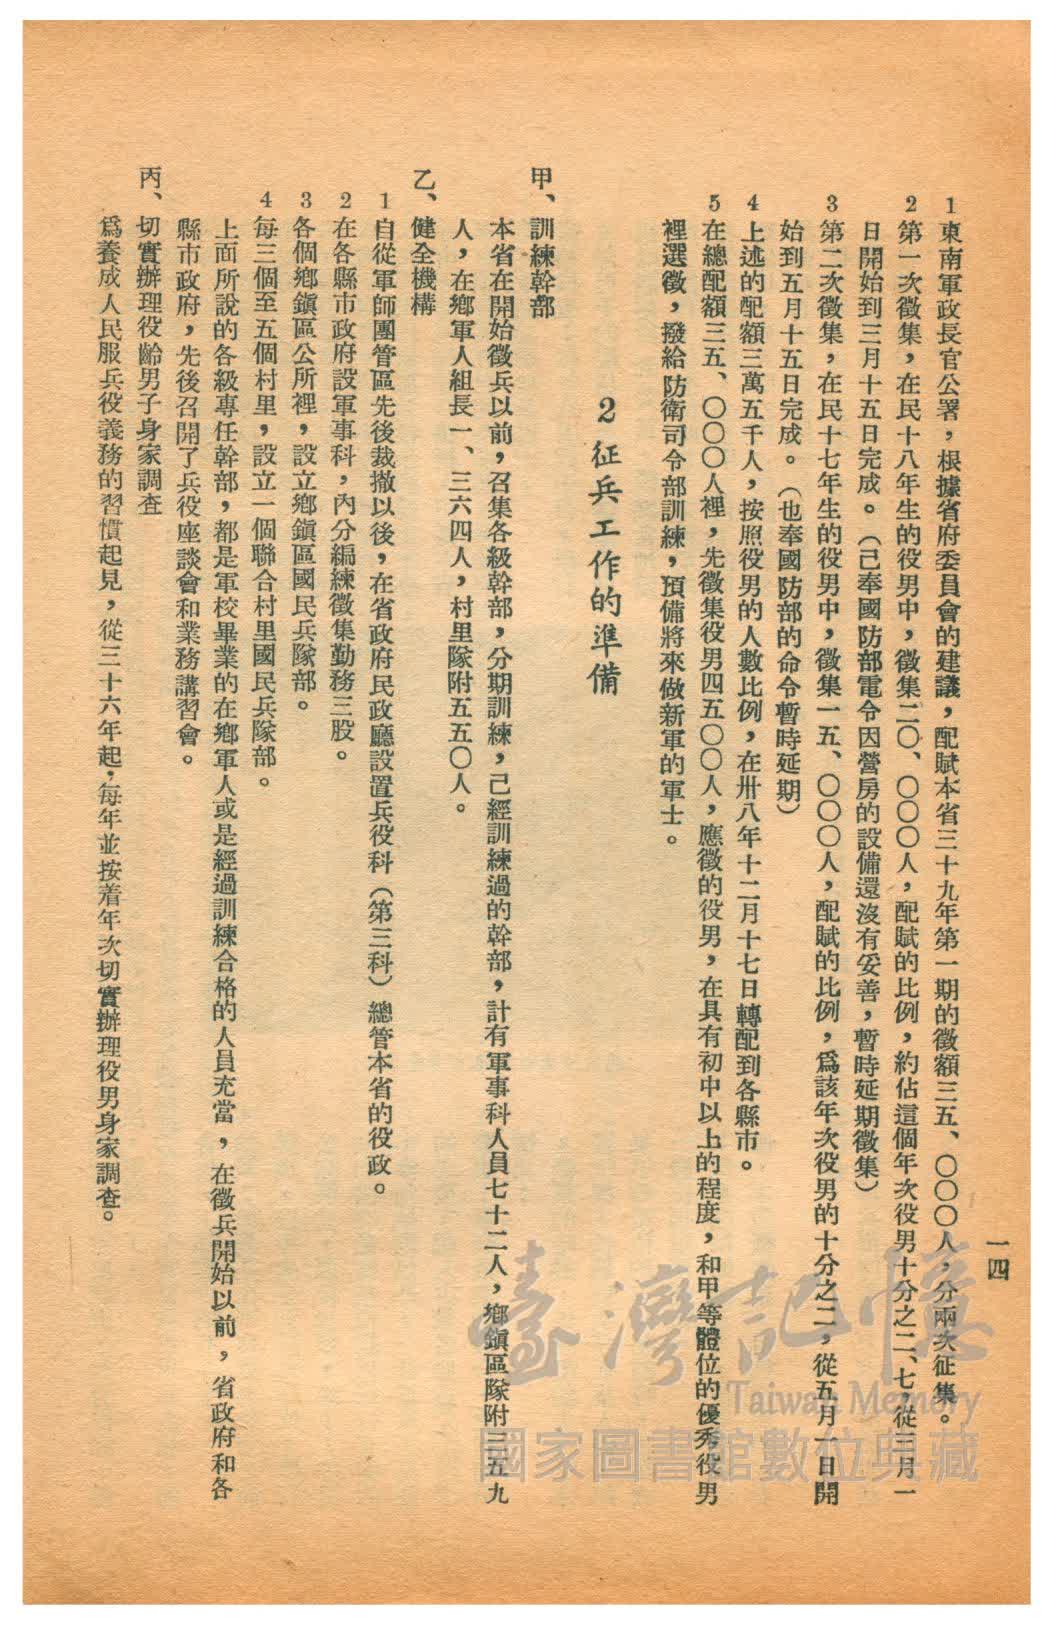 一四
1 東南軍政長官公署，根據省府委員會的建議，配賦本省三十九年第一期的徵額三五、〇〇〇人，分兩次征集。
2 第一次徵集，在民十八年生的役男中，徵集二〇、〇〇〇人，配賦的比例，約佔這個年次役男十分之二、七，從三月一
日開始到三月十五日完成。（己奉國防部電令因營房的設備還沒有妥善，暫時延期徵集）
3 第二次徵集，在民十七年生的役男中，徵集一五、〇〇〇人，配賦的比例，爲該年次役男的十分之二，從五月一日開
始到五月十五日完成。（也奉國防部的命令暫時延期）
4 上述的配額三萬五千人，按照役男的人數比例，在卅八年十二月十七日轉配到各縣市。
5 在總配額三五、〇〇〇人裡，先徵集役男四五〇〇人，應徵的役男，在具有初中以上的程度，和甲等體位的優秀役男
裡選徵，撥給防衛司令部訓練，預備將來做新軍的軍士。
2 征兵工作的準備
甲、訓練幹部
本省在開始徵兵以前，召集各級幹部，分期訓練，己經訓練過的幹部，計有軍事科人員七十二人，鄉鎮區隊附三五九
人，在鄉軍人組長一、三六四人，村里隊附五五〇人。
乙、健全機構
1 自從軍師團管區先後裁撤以後，在省政府民政廳設置兵役科（第三科）總管本省的役政。
2 在各縣市政府設軍事科，內分編練徵集勤務三股。
3 各個鄉鎮區公所裡，設立鄉鎮區國民兵隊部。
4 每三個至五個村里，設立一個聯合村里國民兵隊部。
上面所說的各級專任幹部，都是軍校畢業的在鄉軍人或是經過訓練合格的人員充當，在徵兵開始以前，省政府和各
縣市政府，先後召開了兵役座談會和業務講習會。
丙、切實辦理役齡男子身家調查
爲養成人民服兵役義務的習慣起見，從三十六年起，每年並按着年次切實辦理役男身家調查。
臺灣記憶
Taiwan Memory
國家圖書館數位典藏